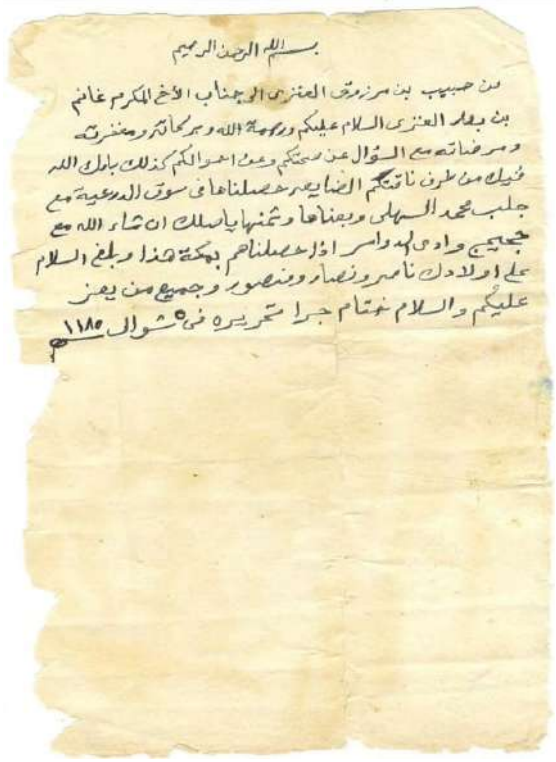 بسم الله الرحمن الرحيم
من حبيب بن مرزوق العنزي الى جناب الأخ المكرم غانم
بن العنزي السلام عليكم ورحمة الله وبركاته ومغفرته
ومرضاته مع السؤال عن صحتكم وعن احوالكم كذلك بارك الله
فيك من طرف ناقتكم الضايعه حصلناها في سوق الدرعية مع
جلب محمد السهلي وبعناها وثمنها ياصلك ان شاء الله مع
حجيج وادى الدواسر اذا حصلناهم بمكة هذا وبلغ السلام
على اولادك ناصر ونصار ومنصور وجميع من يعز
عليكم والسلام ختام جرا تحريره في ٥ شوال ١١٨٥